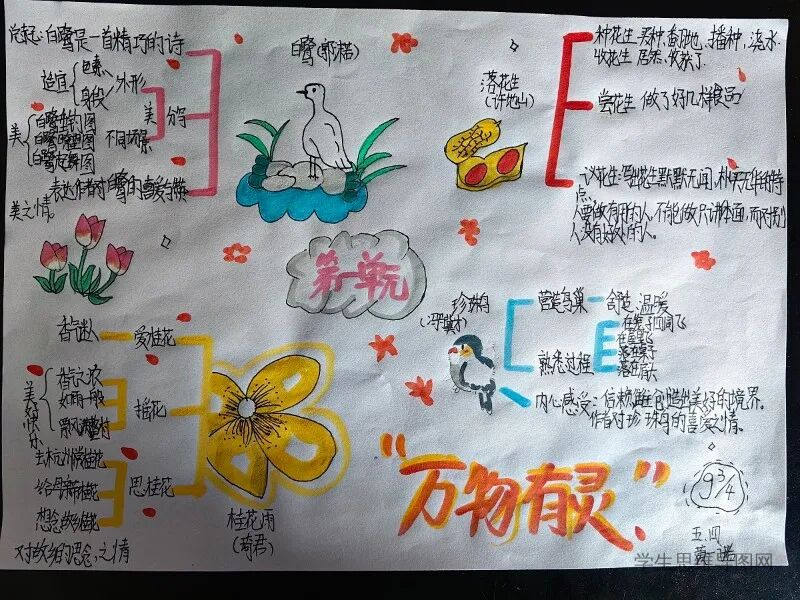 总起：白鹭是一首精巧的诗
适宜
色素
身段
外形
美
分写
美
白鹭钓鱼图
白鹭瞭望图
不同场景
表达作者对白鹭的喜爱与赞
美之情。
白鹭(郭沫若)
落花生
(许地山)
种花生 买种，翻地，播种，浇水
收花生 居然，收获了
尝花生 做了好几样食品
议花生：写出花生默默无闻，朴实无华的特
点。
人要做有用的人，不能做只讲体面，而对别
人没有好处的人。
第一单元
珍珠鸟
(冯骥才)
营造鸟巢
舒适、温暖
熟悉过程
落在肩头
内心感受：信赖
创造出美好的境界。
作者对珍珠鸟的喜爱之情。
香迷人
爱桂花
美好快乐
香气之浓
如雨一般
摇花
去杭州赏桂花
思桂花
想念故乡桂花
对故乡的思念之情
桂花雨
(琦君)
“万物有灵”
9¾
五.四
学生思维导图网